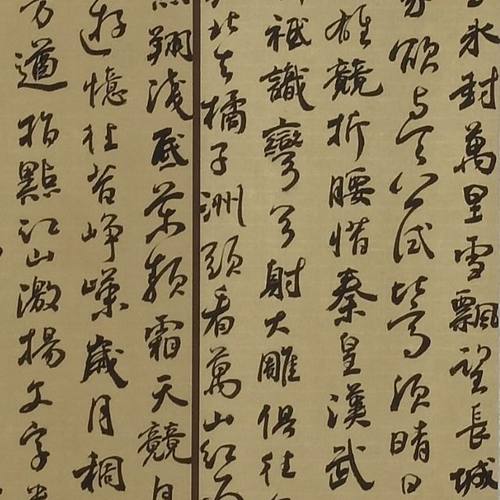 冰封萬里雪飄望長城
欲与天公試比高須晴日
雄競折腰惜秦皇漢武
祗識彎弓射大雕俱往
北去橘子洲頭看萬山紅
翔淺底萬類霜天競自
遊憶往昔崢嶸歲月稠
方遒指點江山激揚文字